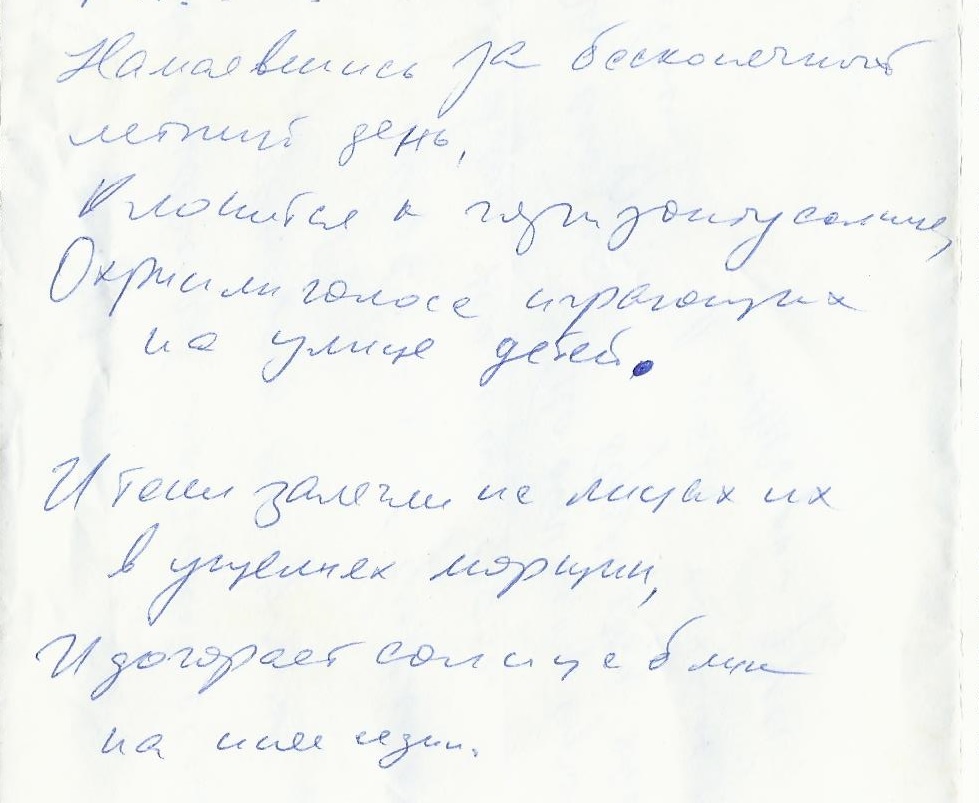 Намаявшись за бесконечный
летний день,
Клонится к горизонту солнце,
Охрипли голоса играющих
на улице детей.
И тени залегли на лицах их
в ущельях морщин,
И догорает солнца блик
на